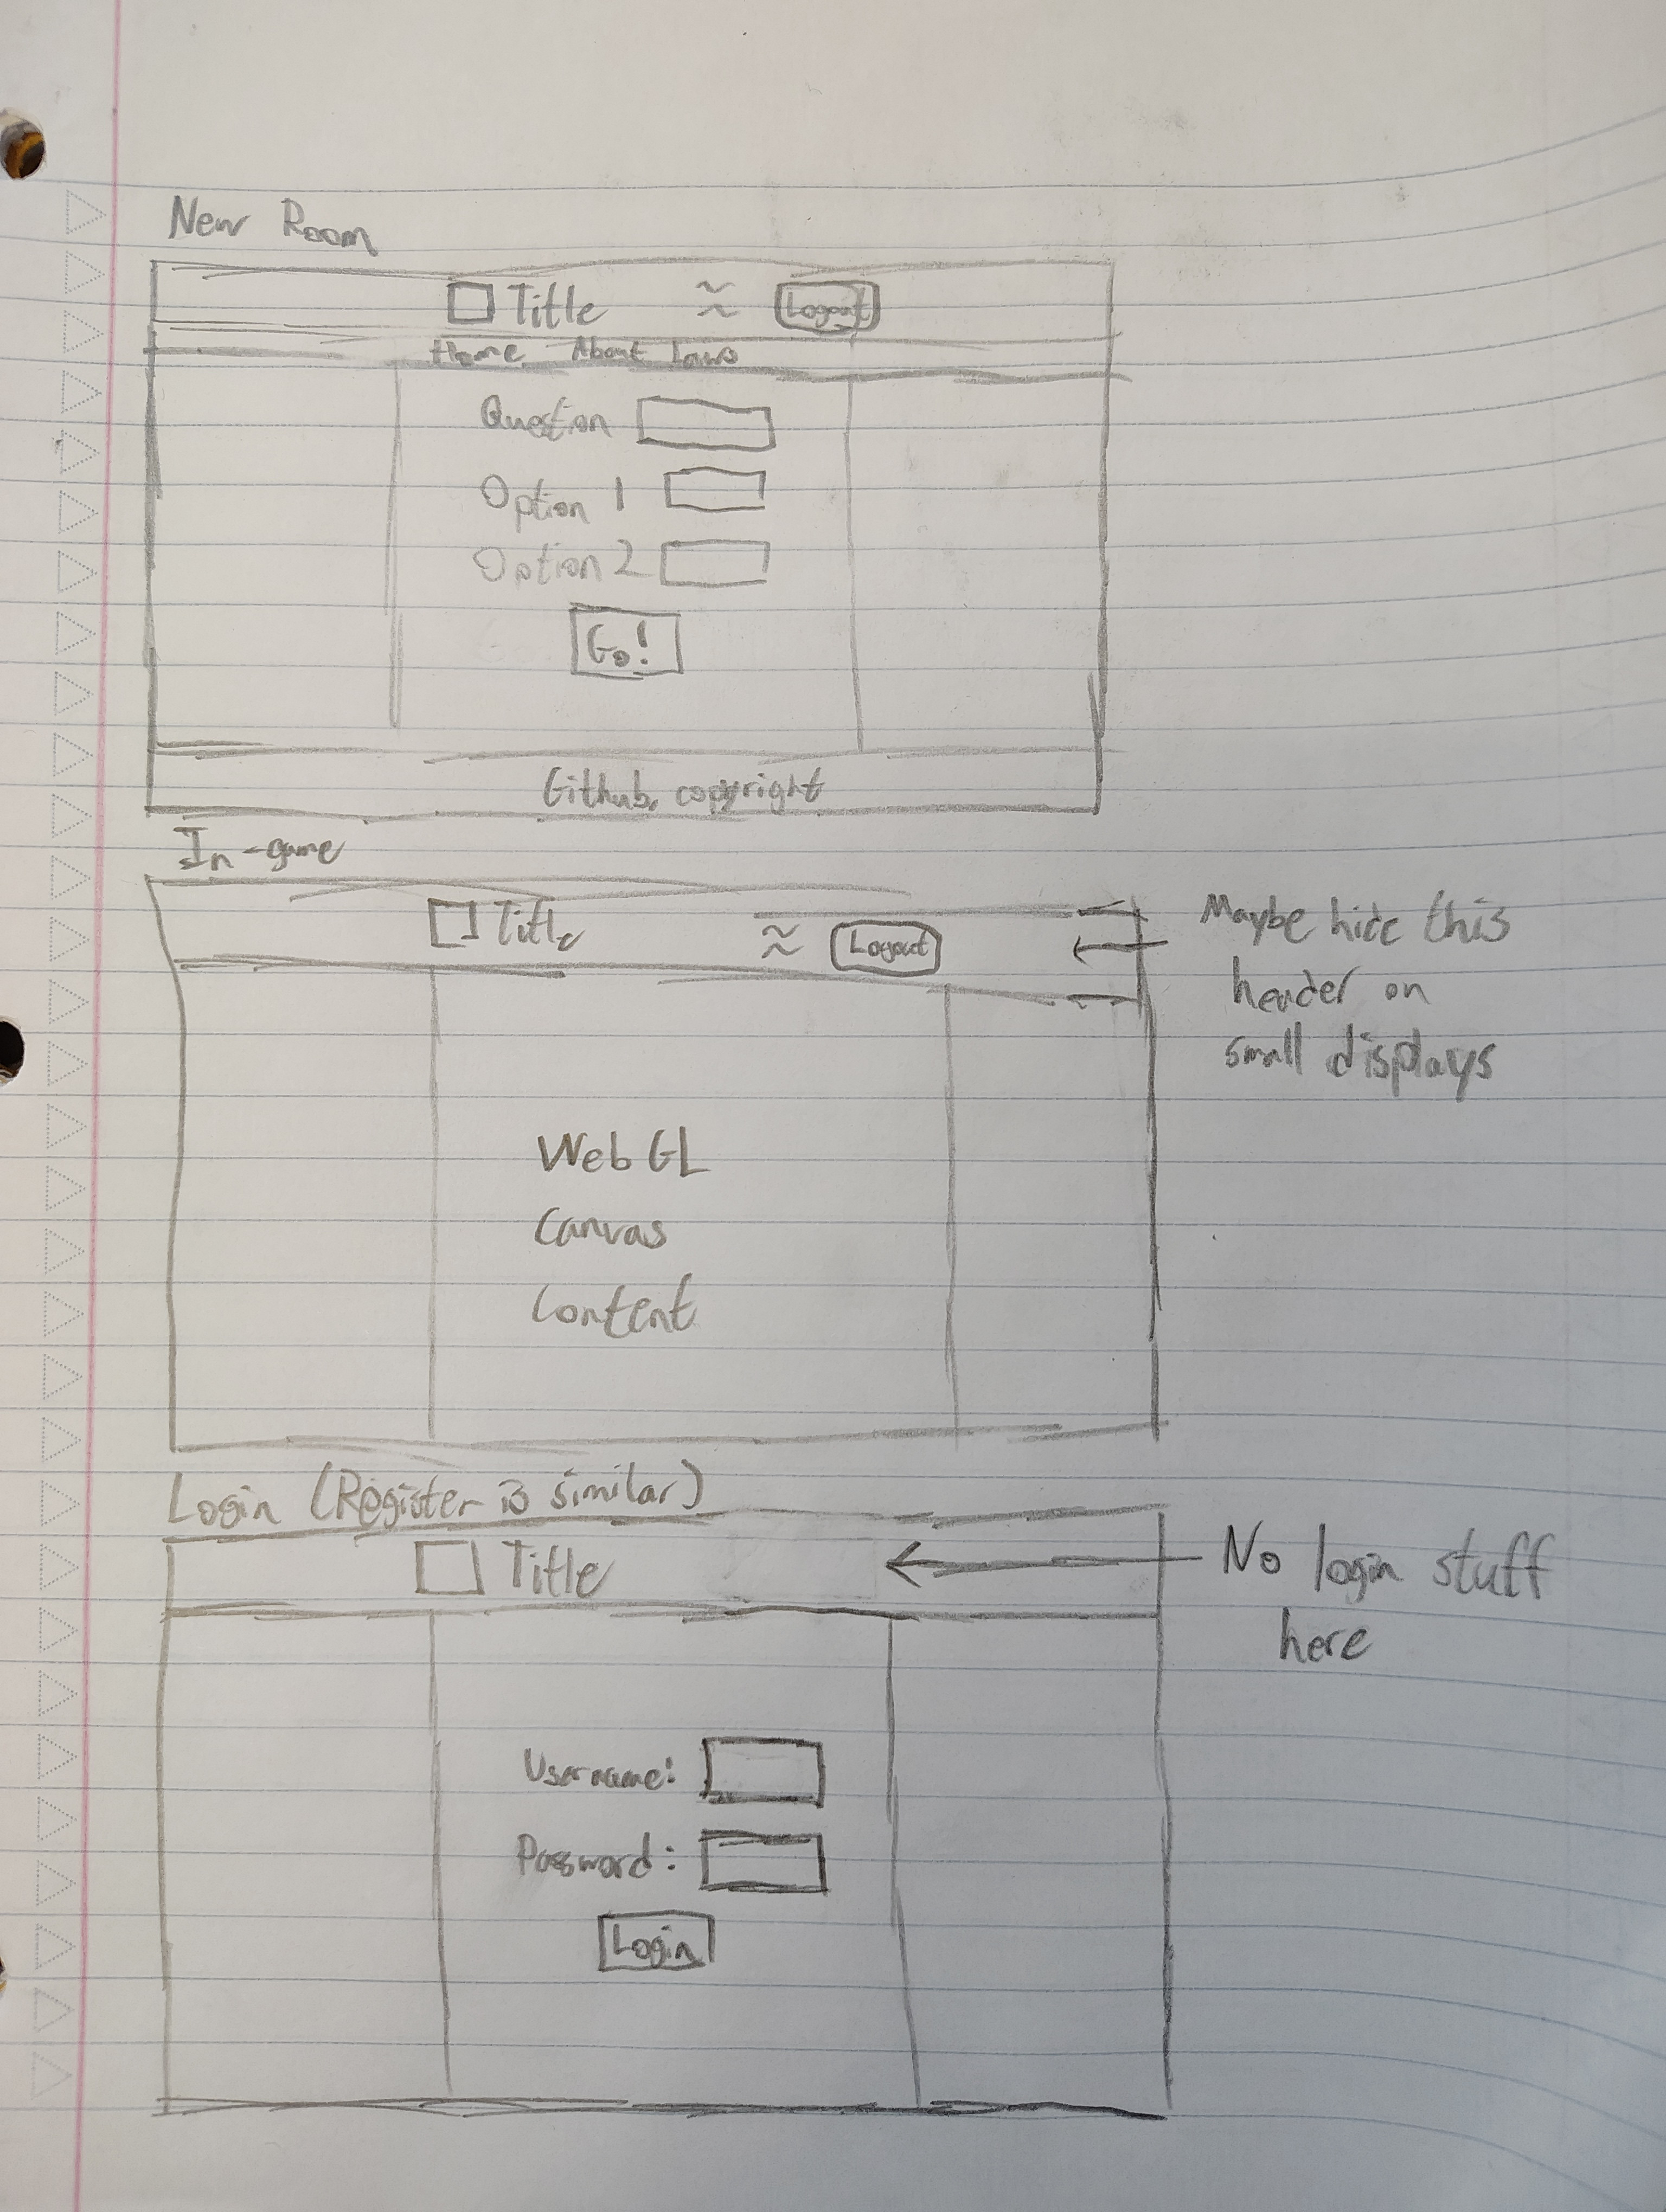 New Room
Title Logout
Home About
Question
Option 1
Option 2
Go!
Github, copyright
In-game
Title Logout
Maybe hide this
header on
small displays
Web GL
Canvas
Content
Login (Register is similar)
Title
No login stuff
here
Username:
Password:
Login